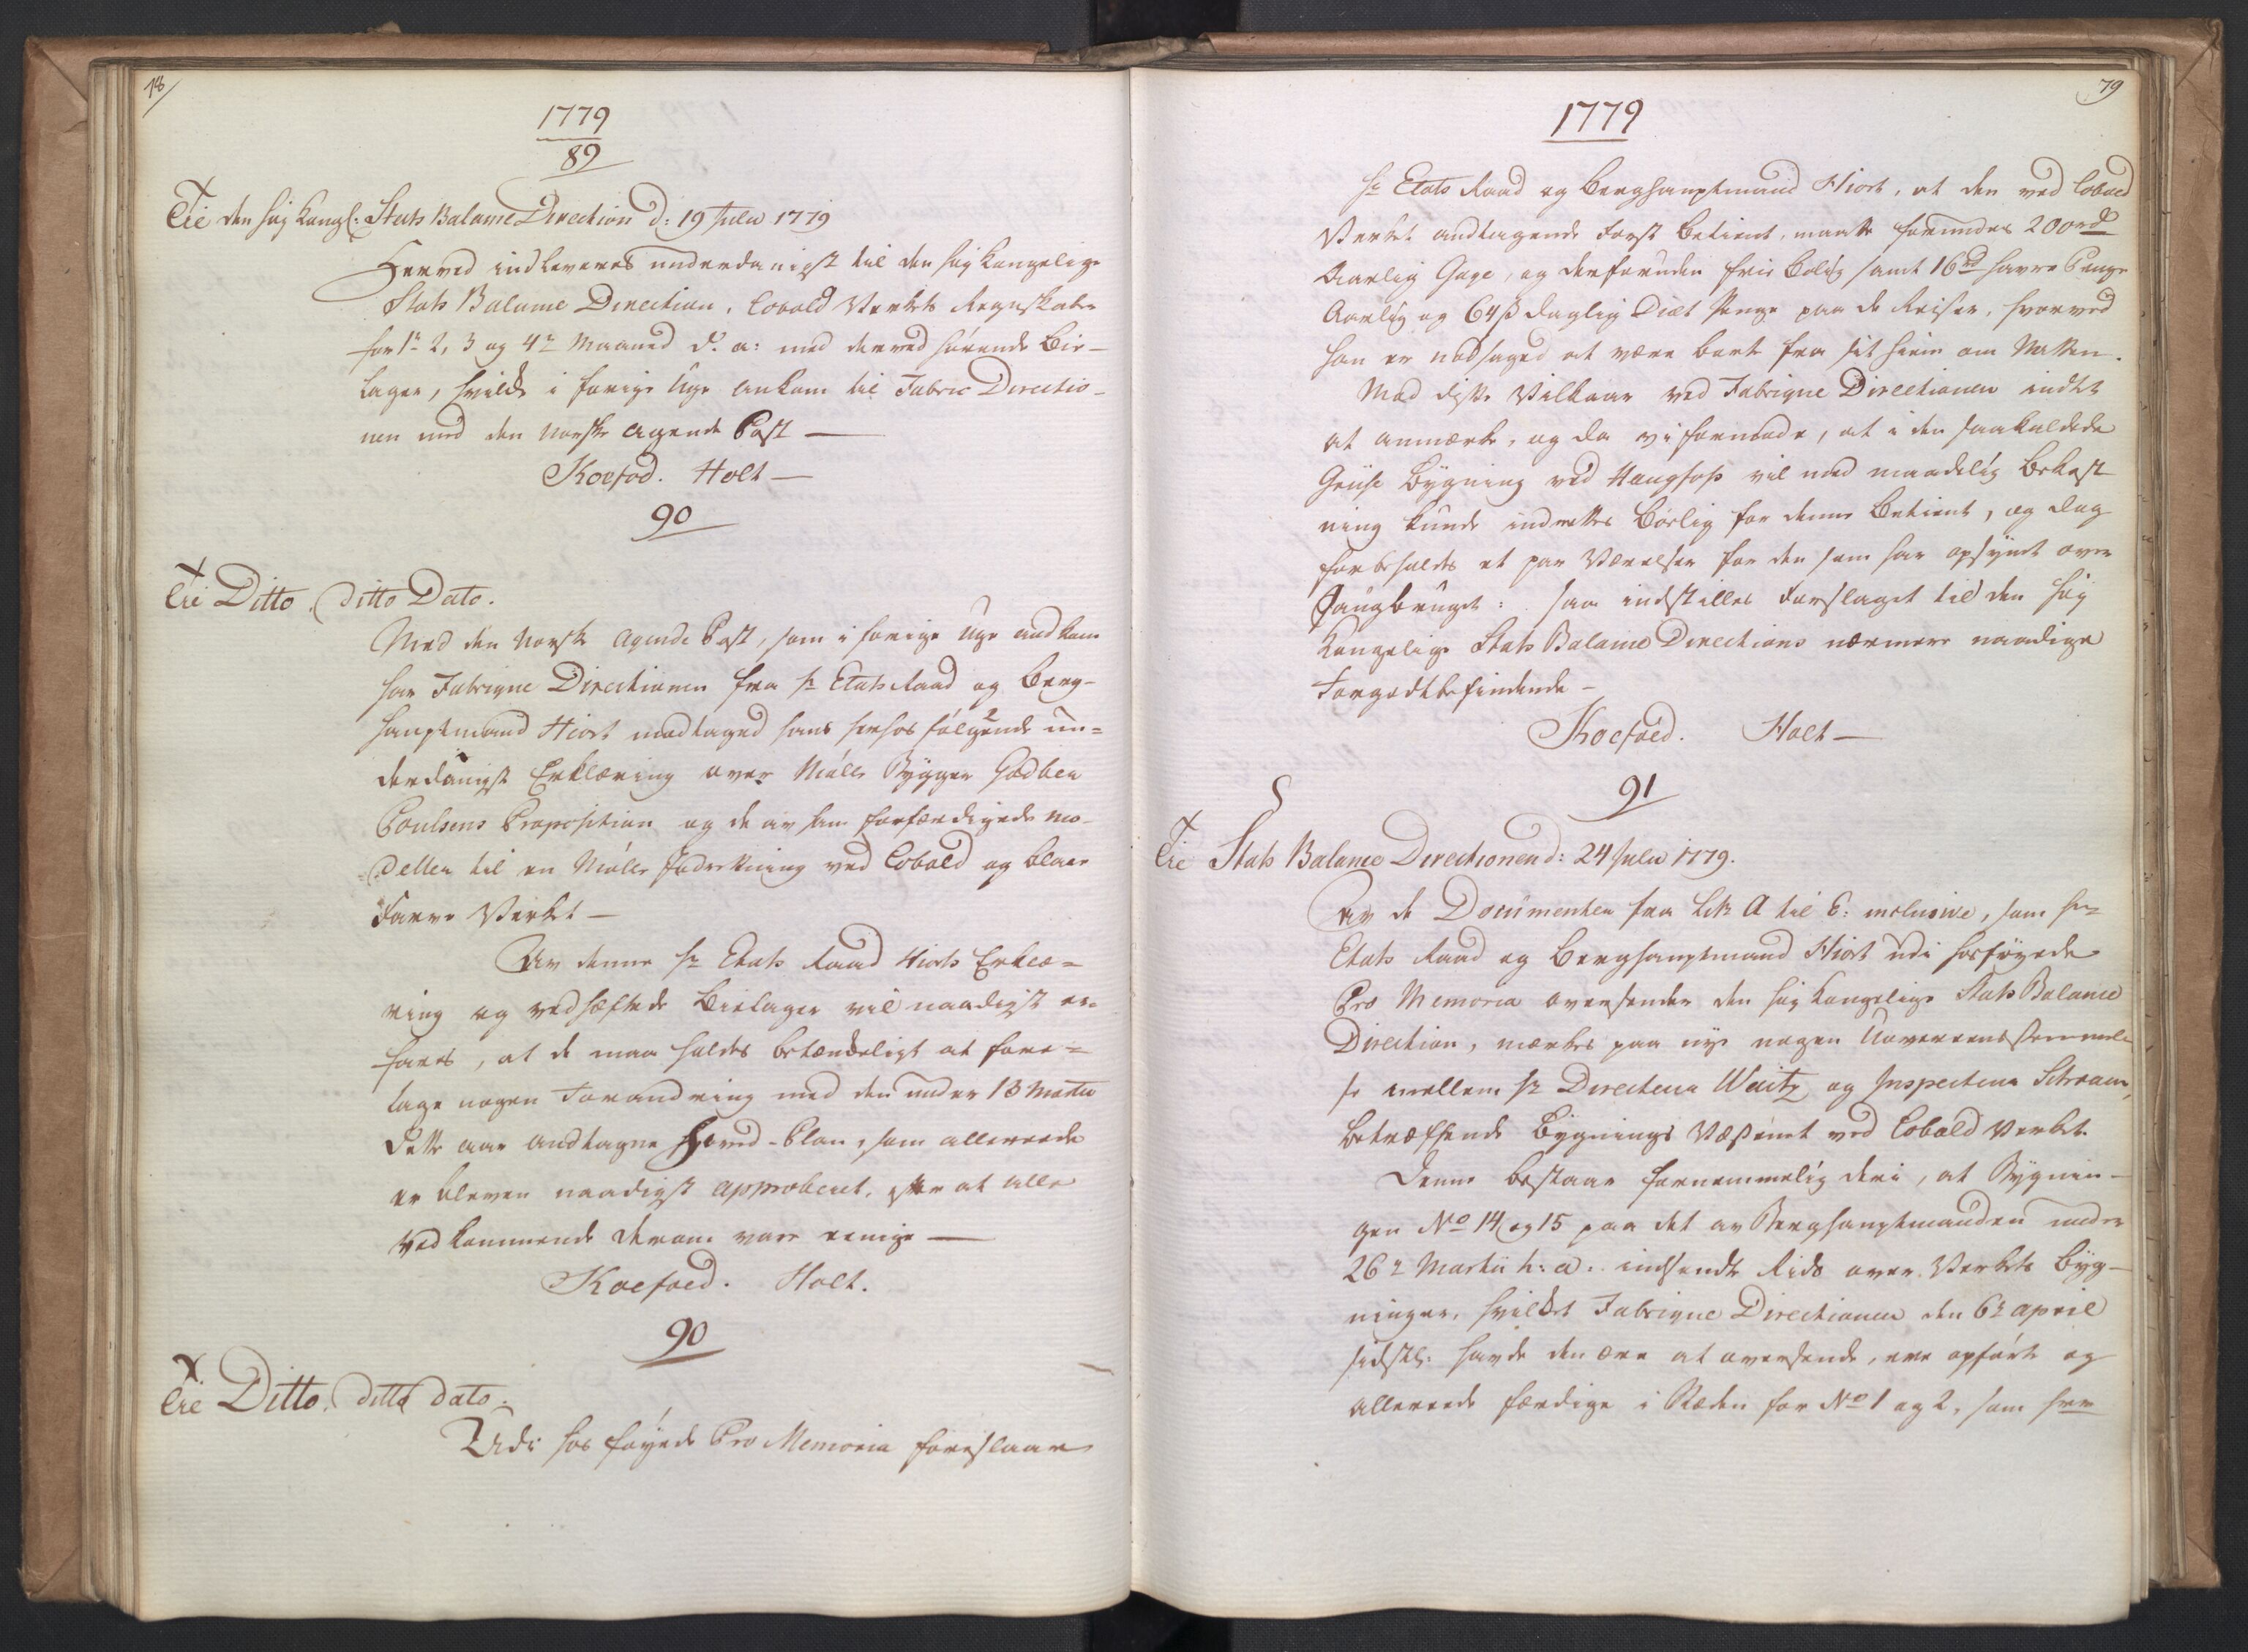 78
1779
89
Til den høy Kongl: Stats Balance Direction d: 19 Julii 1779
Herved indleveres underdanigst til den høy Kongelige
Stats Balance Direction, Cobold Verkets Regnskaber
for 1te 2, 3 og 4de Maaned d: a: med derved hørende Bie-
lager, hvilke i forige Uge ankom til Fabric Directio-
nen med den norske agende Post —
Koefod. Holt —
90
Til Ditto. Ditto Dato.
Med den Norske agende Post, som i forige Uge ankom
har Fabrique Directionen fra Hr Etats Raad og Berg-
hauptmand Hiort modtaged hans herhos følgende un-
derdanigst Erklæring over Mølle Bygger Gudben
Poulsens Proposition og de av ham forfærdigede mo-
deller til en Mølle Indretning ved Cobold og blaae
Farve Verket —
Av denne Hr Etats Raad Hiorts Erklæ-
ring og vedhæftede Bielager vil naadigst er-
fares, at de maa holdes betænkeligt at fore-
tage nogen Forandring med den under 13 Martii
dette aar andtagne Hoved-Plan, som allereede
er bleven naadigst approberet, efter at alle
Vedkommende derom vare eenige —
Koefoed. Holt.
90
Til Ditto. ditto dato.
Udi hos føyede Pro Memoria foreslaaer
79
1779
Hr Etats Raad og Berghauptmand Hiort, at den ved Cobold
Verket andtagende Forst Betient, maatte forundes 200 rd
Aarlig Gage, og desforuden frie Bolig samt 16 rd havre Penge
Aarlig og 64 ß daglig Diæt Penge paa de Reiser, hvorved
han er nødsaged at være borte fra sit hiem om Natten.
Mod disse Vilkaar ved Fabrique Directionen indtet
at anmærke, og da vi formode, at i den saakaldede
Grüse Bygning ved Haugfoss vil med maadelig Bekost
ning kunde indrettes Bøelig for denne Betient, og dog
forbeholdes et par Værelser for den som har opsynet over
Saugbruget: saa indstilles Forslaget til den høy
Kongelige Stats Balance Directions nærmere naadige
Forgodtbefindende —
Koefoed. Holt —
91
Til Stats Balance Directionen d: 24 Julii 1779.
Av de Documenter fra Litr A til E: inclusive, som Hr
Etats Raad og Berghauptmand Hiort udi hosføyede
Pro Memoria oversender den høy Kongelige Stats Balance
Direction, mærkes paa nye nogen Uovereensstemmel-
se mellem Hr Directeur Waitz og Inspecteur Schram,
betræffende Bygnings Væsenet ved Cobold Verket.
Denne bestaar fornemmelig deri, at Bygnin-
gen No 14 og 15 paa det av Berghauptmanden under
26de Martii h: a: indsendte Rids over Verkets Byg-
ninger, hvilket Fabrique Directionen den 6te april
sidstl: havde den ære at oversende, ere opført og
allereede færdige i Stæden for No 1 og 2, som her